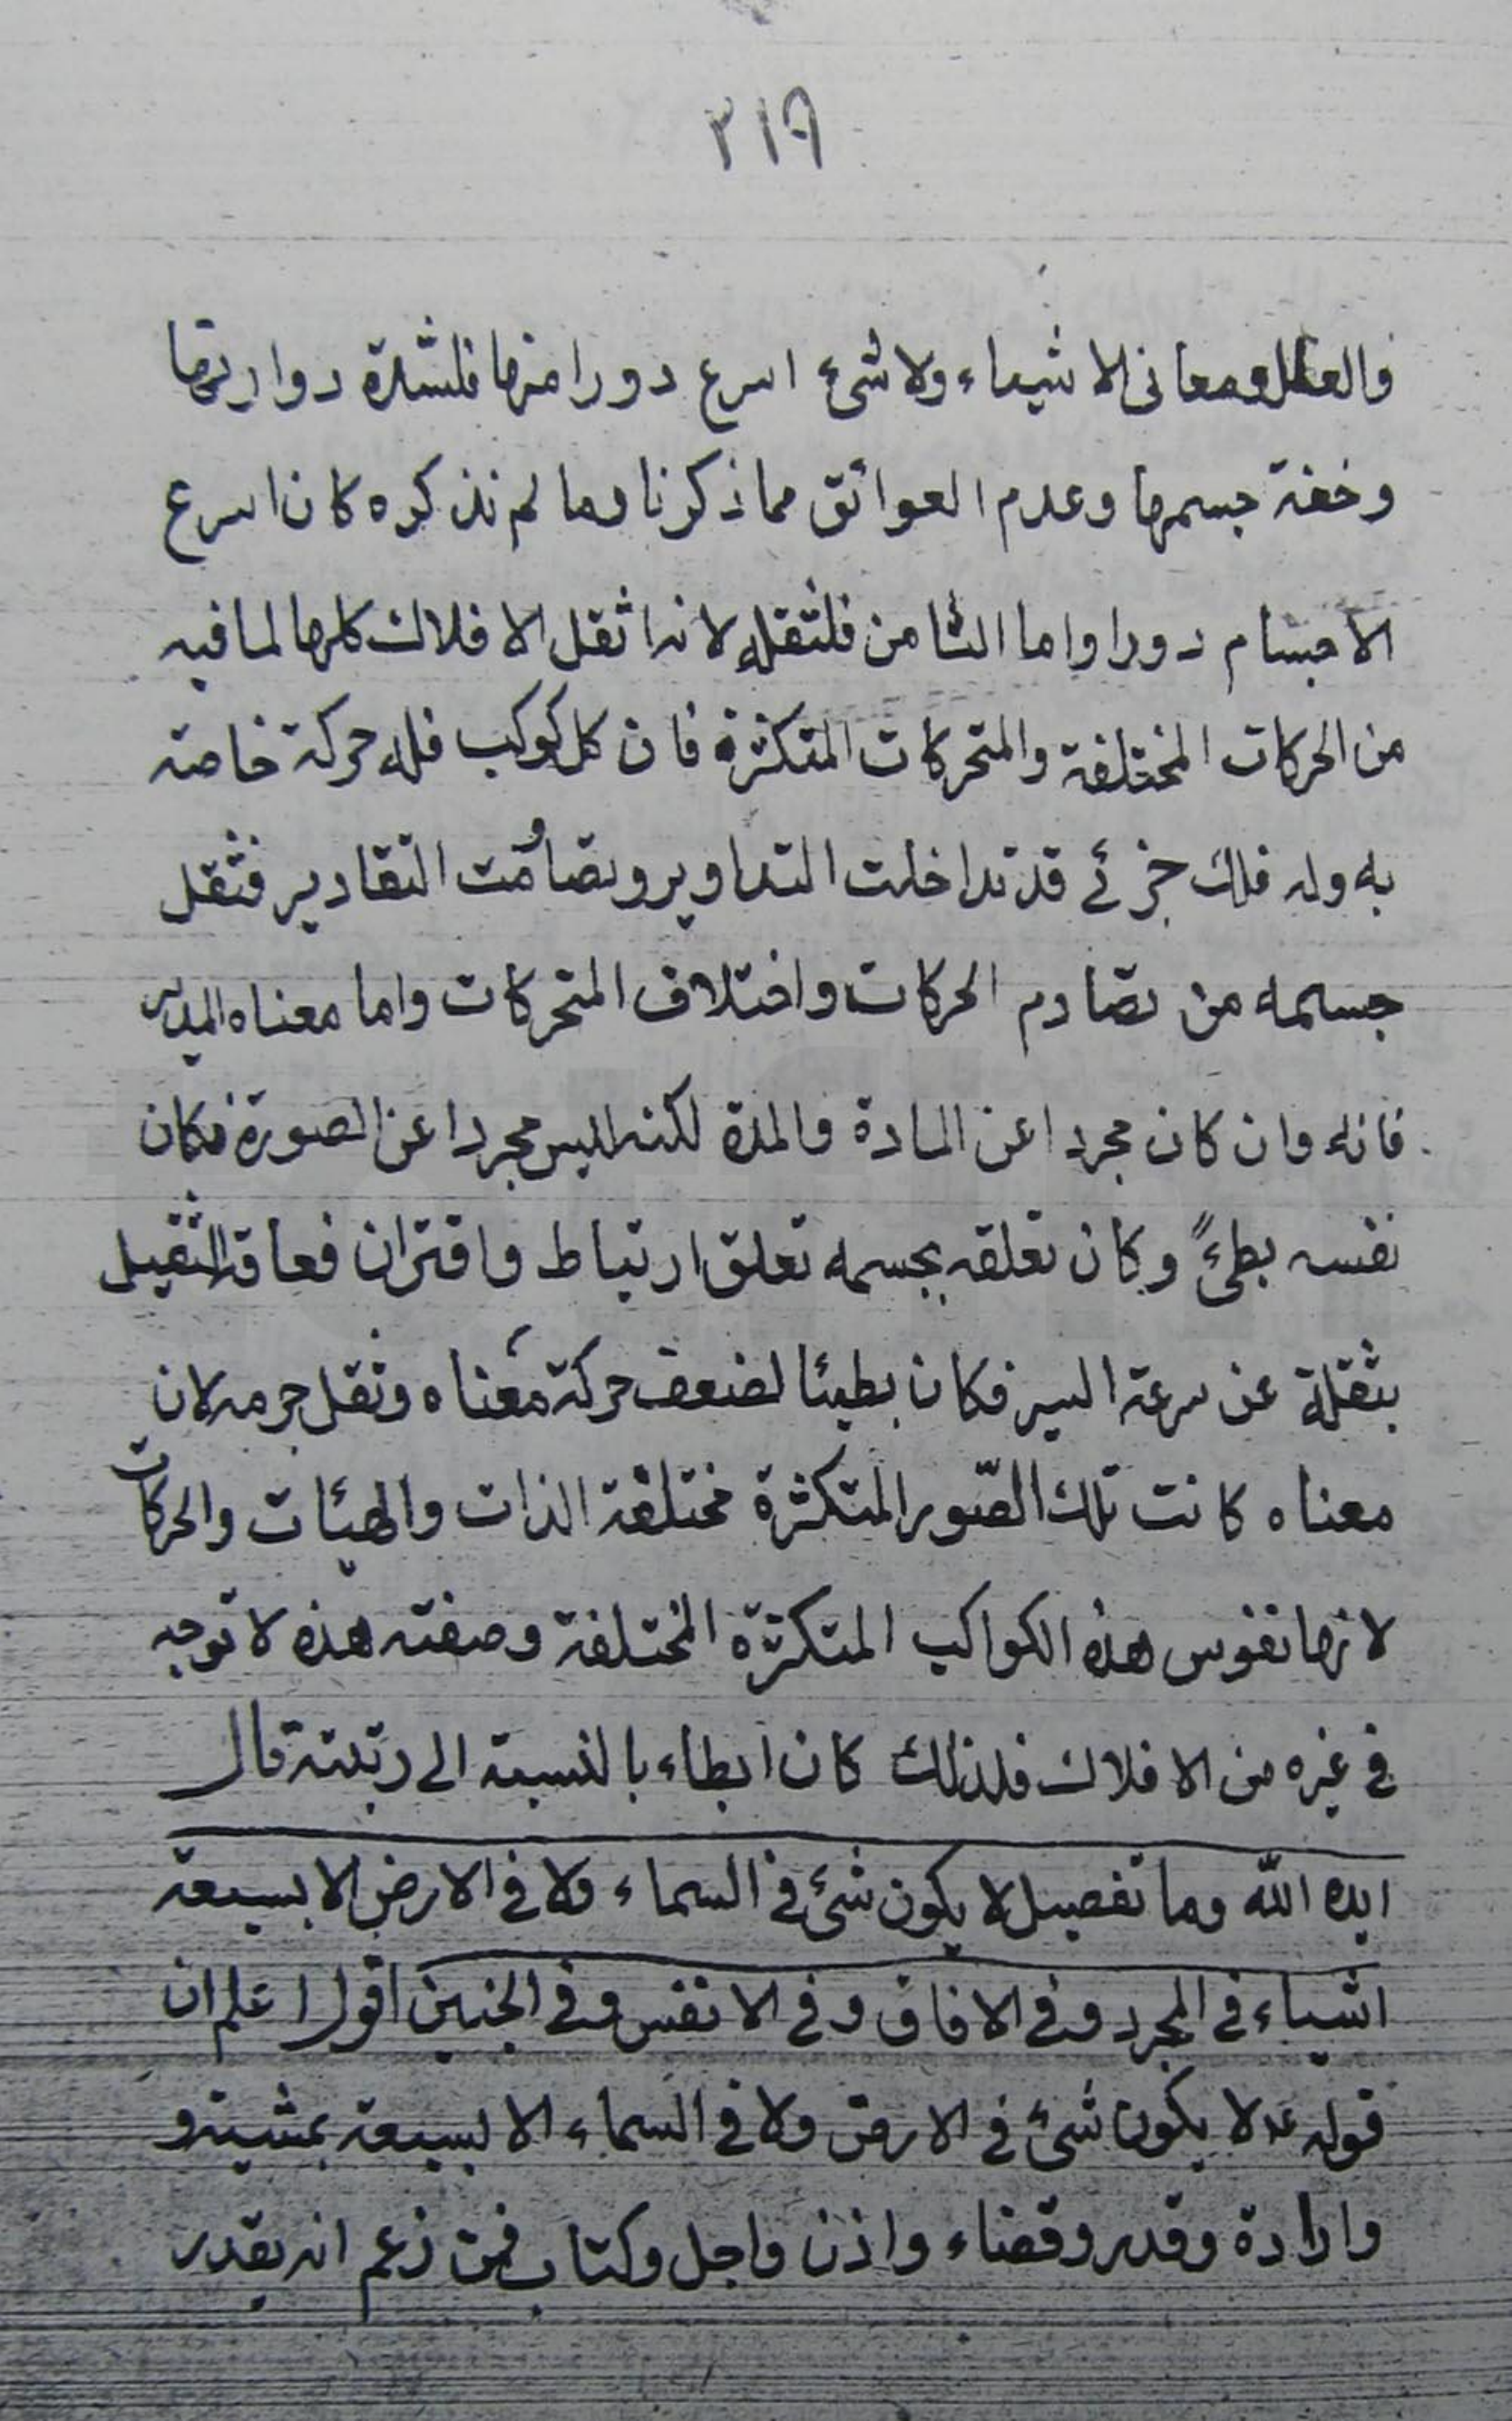 ٢١٩
والعقل ومعانى الاشياء ولا شئ اسرع دورا منها فلشدة دوارتها
وخفة جسمها وعدم العوائق مما ذكرنا وما لم نذكره كان اسرع
الاجسام دورا واما الثامن فلثقله لانه اثقل الافلاك كلها لما فيه
من الحركات المختلفة والمتحركات المتكثرة فان كل كوكب فله حركة خاصة
به وله فلك جزئے قد تداخلت التداوير وتصاومت التقادير فثقل
جسمه من تصادم الحركات واختلاف المتحركات واما معناه المدبر
فانه وان كان مجردا عن المادة والمدة لكنه ليس مجردا عن الصورة فكان
نفسه بطئً وكان تعلقه بجسمه تعلق ارتباط واقتران فعاقه الثقيل
بثقله عن سرعة السير فكان بطيئا لضعف حركة معناه وثقل جرمه لان
معناه كانت تلك الصّور المتكثرة مختلفة الذات والهيئات والحركات
لانها نفوس هذه الكواكب المتكثرة المختلفة وصفته هذه لا توجد
فى غيره من الافلاك فلذلك كان ابطاء بالنسبة الى رتبته قال
ايده الله وما تفصيل لا يكون شئ فى السماء ولا فى الارض الا بسبعة
اشياء فى المجرد وفى الافاق وفى الانفس وفى الجنين اقول اعلم ان
قوله ع لا يكون شئ فى الارض ولا فى السماء الا بسبعة بمشية و
وارادة وقدر وقضاء واذن واجل وكتاب فمن زعم انه يقدر